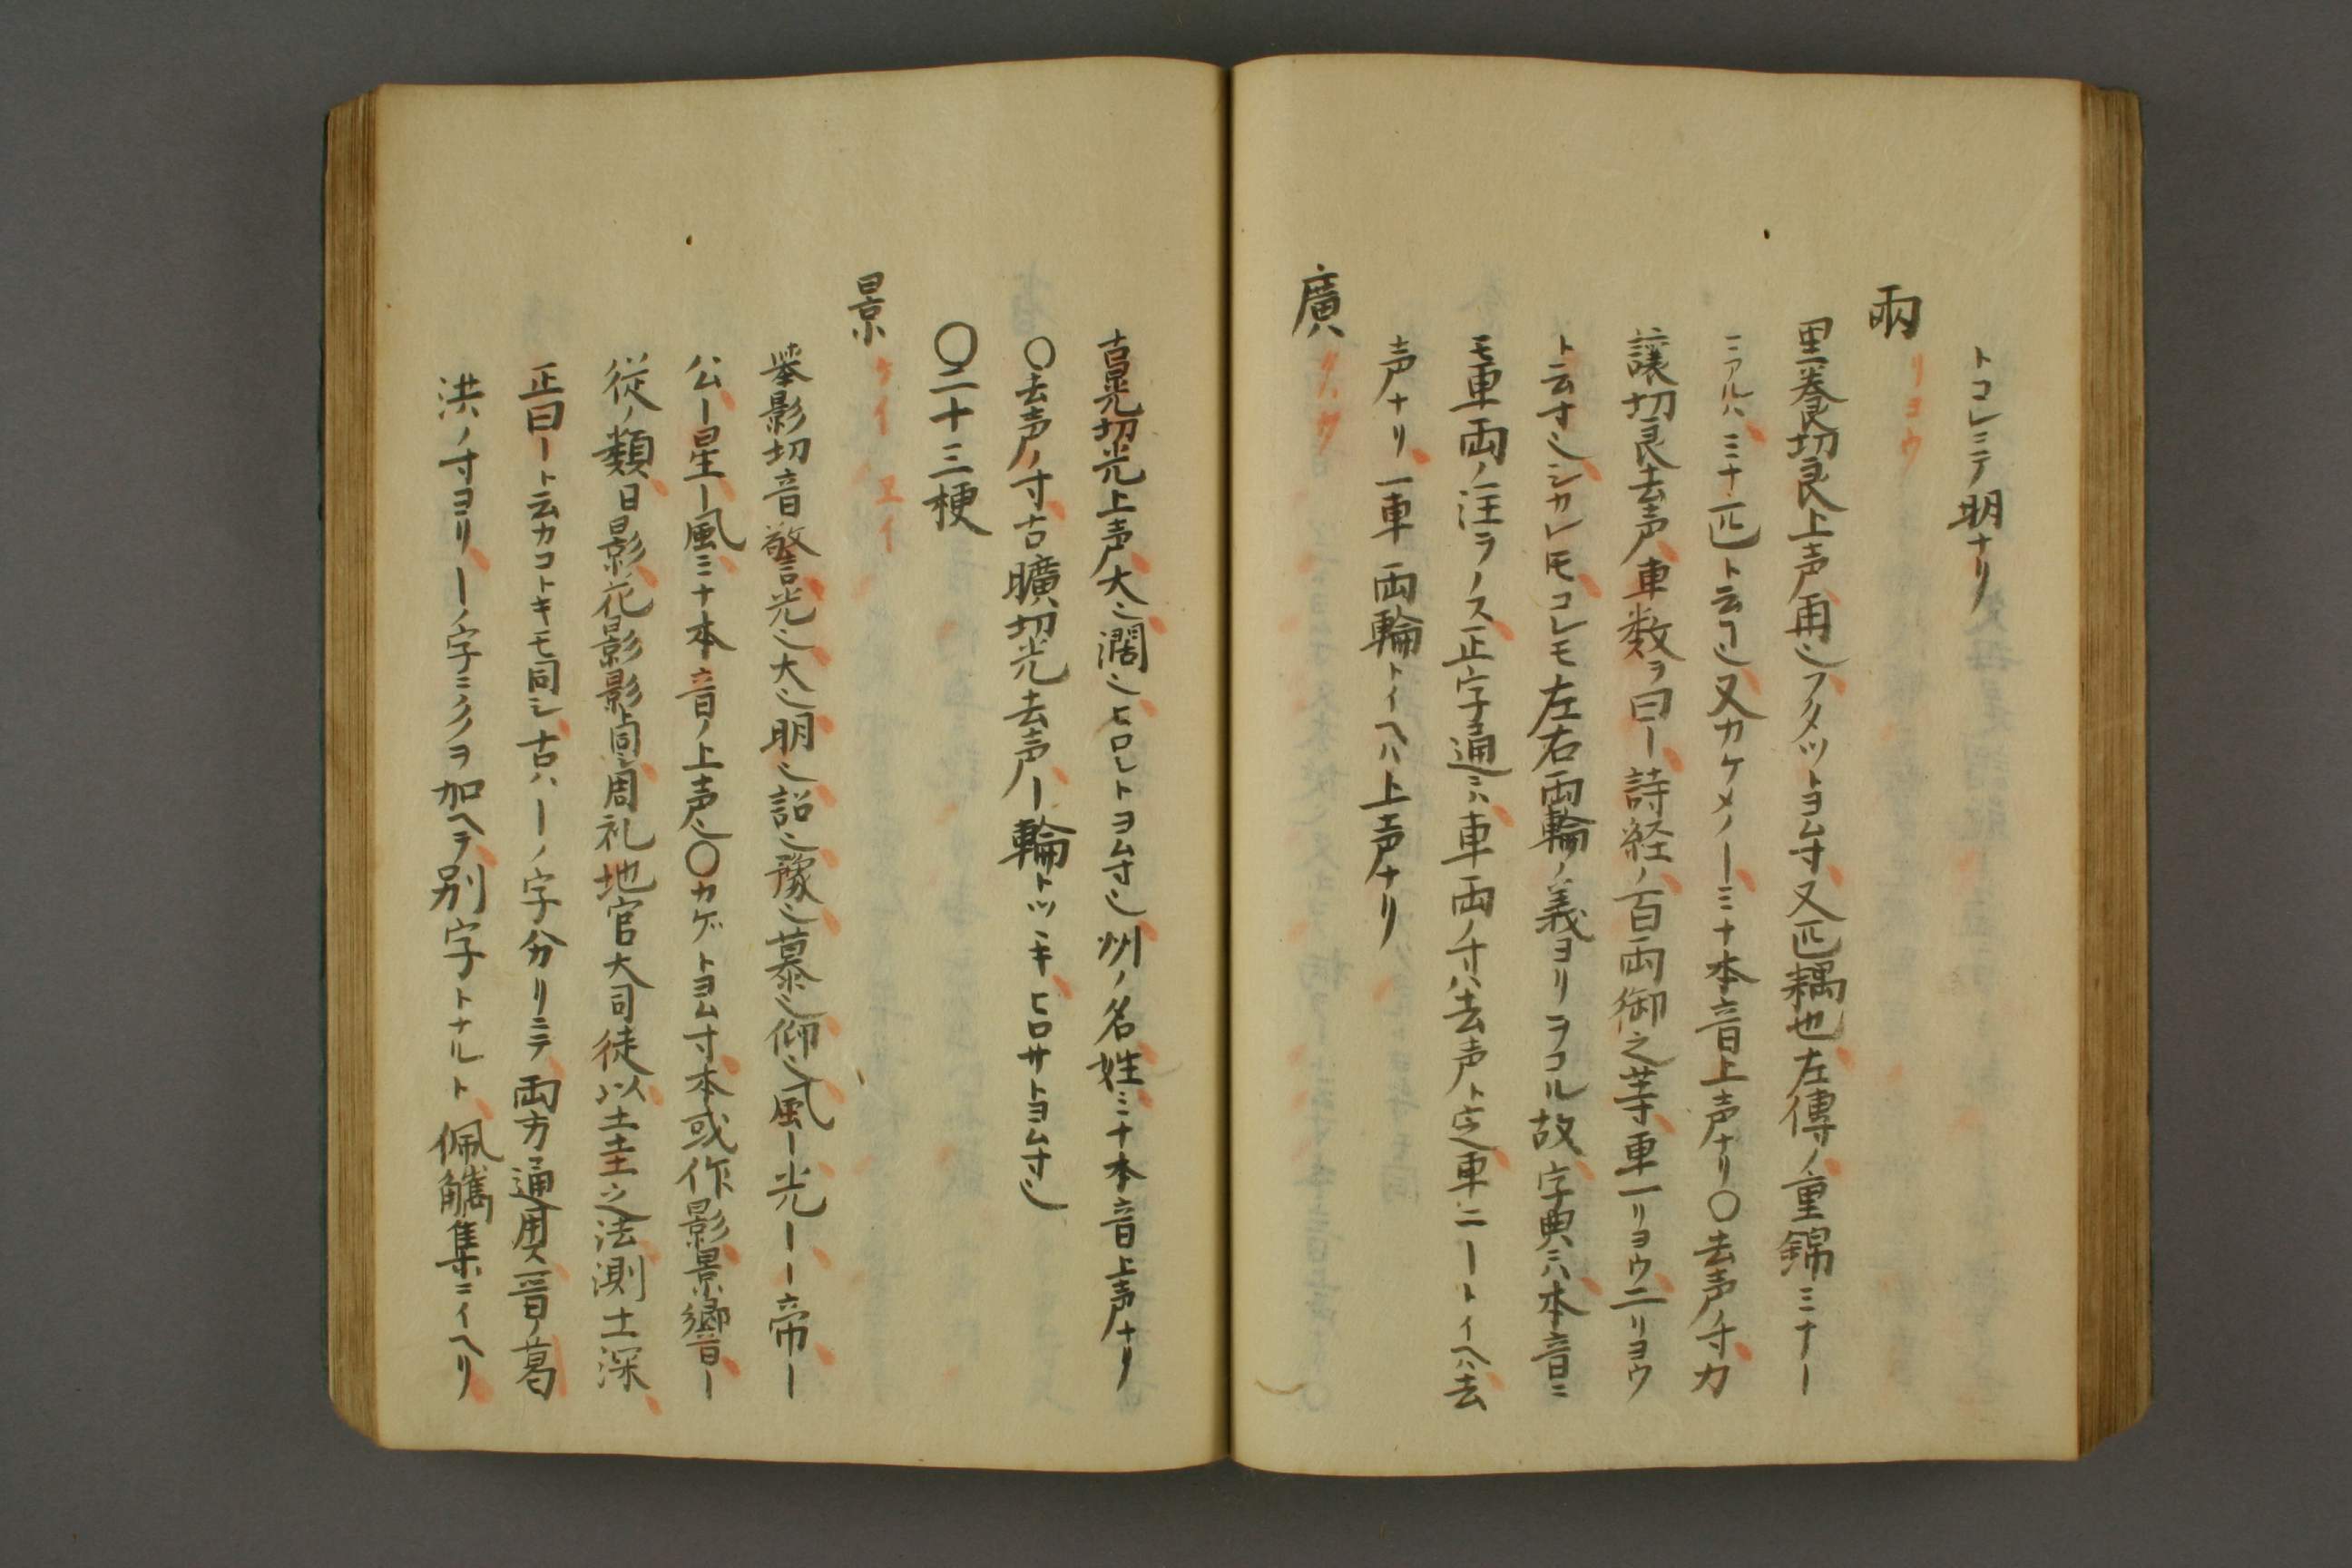 トコレニテ明ナリ
兩 リヨウ
里養切良上声再也フタツトヨム寸又匹耦也左傳ノ重錦三十ー
ニアルハミナ匹ト云コ也又カケメノーミナ本音上声ナリ〇去声ノ寸力
讓切良去声車数ヲ曰ー詩経ノ百両御之等車一リヨウ二リヨウ
ト云寸也シカレモコレモ左右両輪ノ義ヨリヲコル故字典ニハ本音ニ
モ車両ノ注ヲノス正字通ニハ車両ノ寸ハ去声ト定車ニートイヘハ去
声ナリ一車両輪トイヘハ上声ナリ
廣 クハウ
古晃切光上声大也濶也ヒロシトヨム寸也州ノ名姓ミナ本音上声ナリ
〇去声ノ寸古曠切光去声ー輪トツヾキヒロサトヨム寸也
〇二十三梗
景 ケイ エイ
舉影切音警光也大也明也詔也豫也慕也仰也風ー光ーー帝ー
公ー星ー風ミナ本音ノ上声也〇カゲトヨム寸本或作影景響音ー
従ノ類日影花影影同シ周礼地官大司徒以土圭之法測土深
正日ート云カコトキモ同シ古ハーノ字分リニテ両方通用ス晋ノ葛
洪ノ寸ヨリーノ字ニ彡ヲ加ヘテ別字トナルト佩觿集ニイヘリ